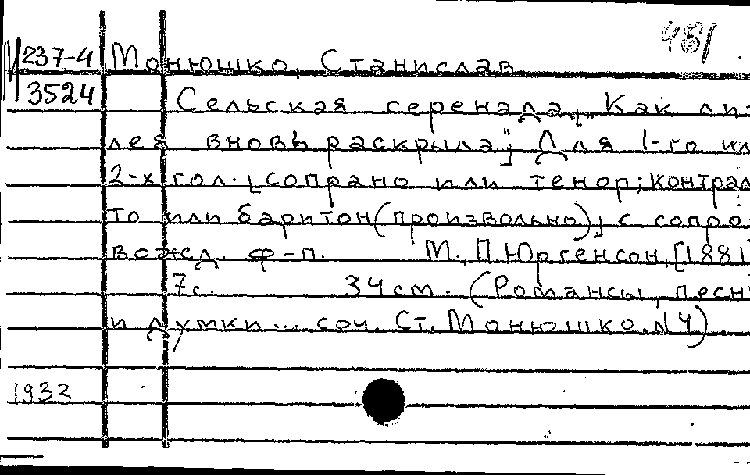 481
237-4 Монюшко, Станислав
3524
Сельская серенада „Как ли
лея вновь раскрыла"; Для 1-го ил
2-х гол. [сопрано или тенор; контрал
то или баритон (произвольно)] с сопро
вожд. ф-п. М., П. Юргенсон, [1881
7с. 34см. (Романсы, песн
и думки... соч. Ст. Монюшко. №4)
1932